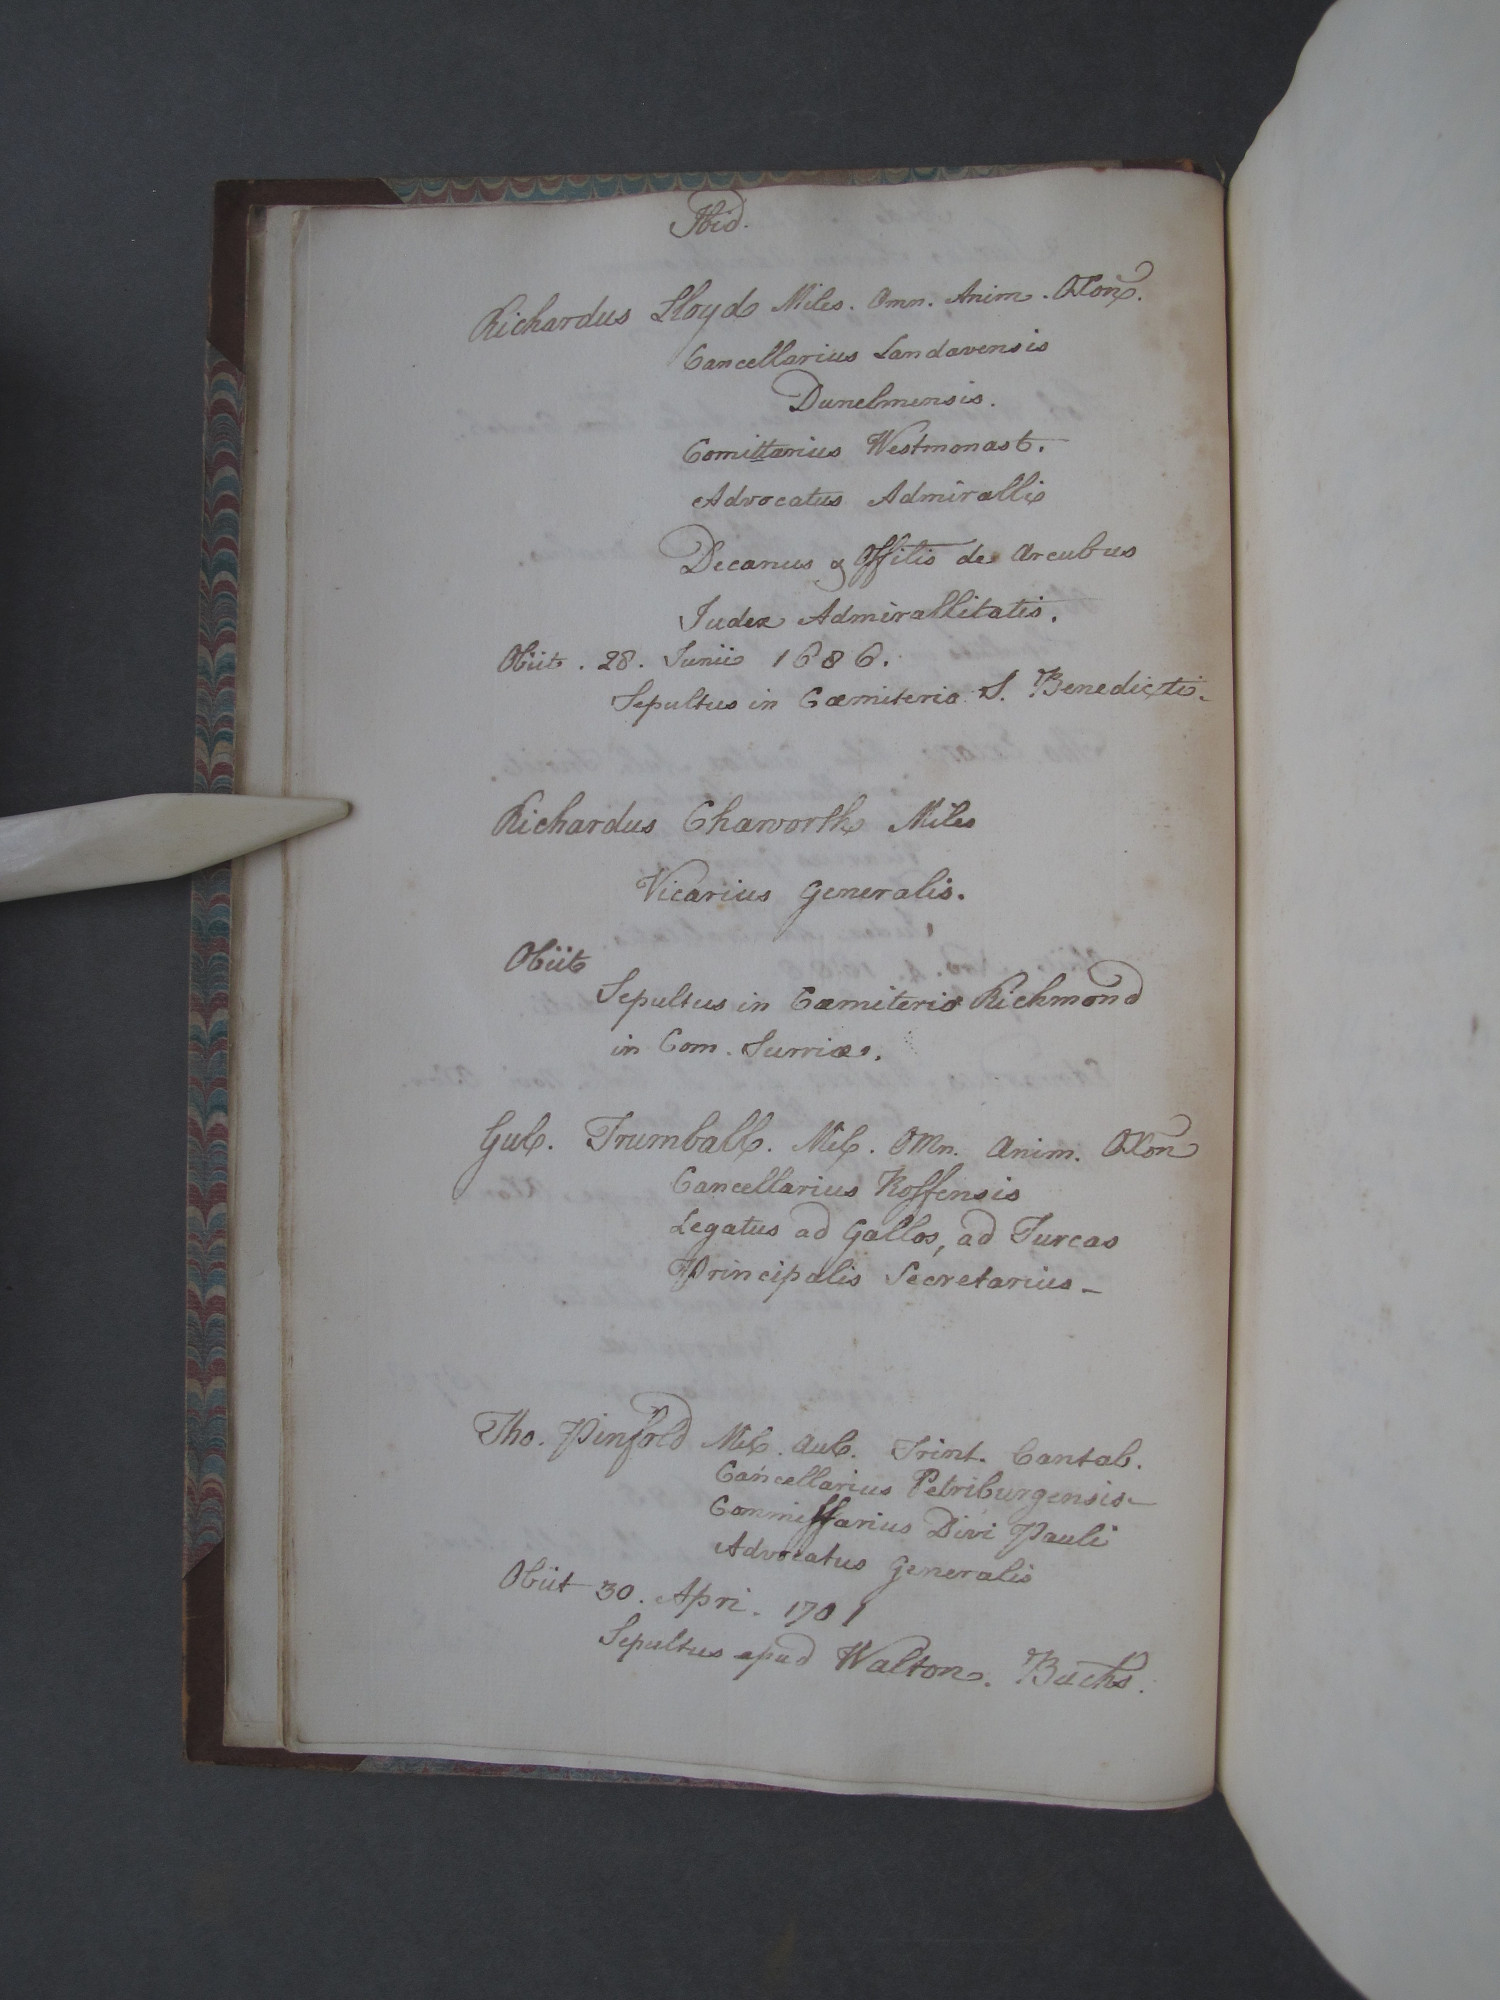 Ibid.
Richardus Lloyd Miles. Omn. Anim. Oxon.
Cancellarius Landavensis
Dunelmensis.
Comittarius Westmonast.
Advocatus Admirallis
Decanus & Offilis de Arcubus
Iudex Admirallitatis.
Obiit. 28. Iunii 1686.
Sepultus in Cæmiterio S. Benedicti-
Richardus Chaworth Miles
Vicarius Generalis.
Obiit
Sepultus in Cæmiterio Richmond
in Com. Surriæ.
Gul. Trumball. Mil. Omn. Anim. Oxon
Cancellarius Roffensis
Legatus ad Gallos, ad Turcas
Principalis Secretarius-
Tho. Pinfold Mil. Aul. Trint. Cantab.
Cancellarius Petriburgensis-
Commissarius Divi Pauli
Advocatus Generalis
Obiit 30. Apri. 1701
Sepultus apud Walton. Buchs.